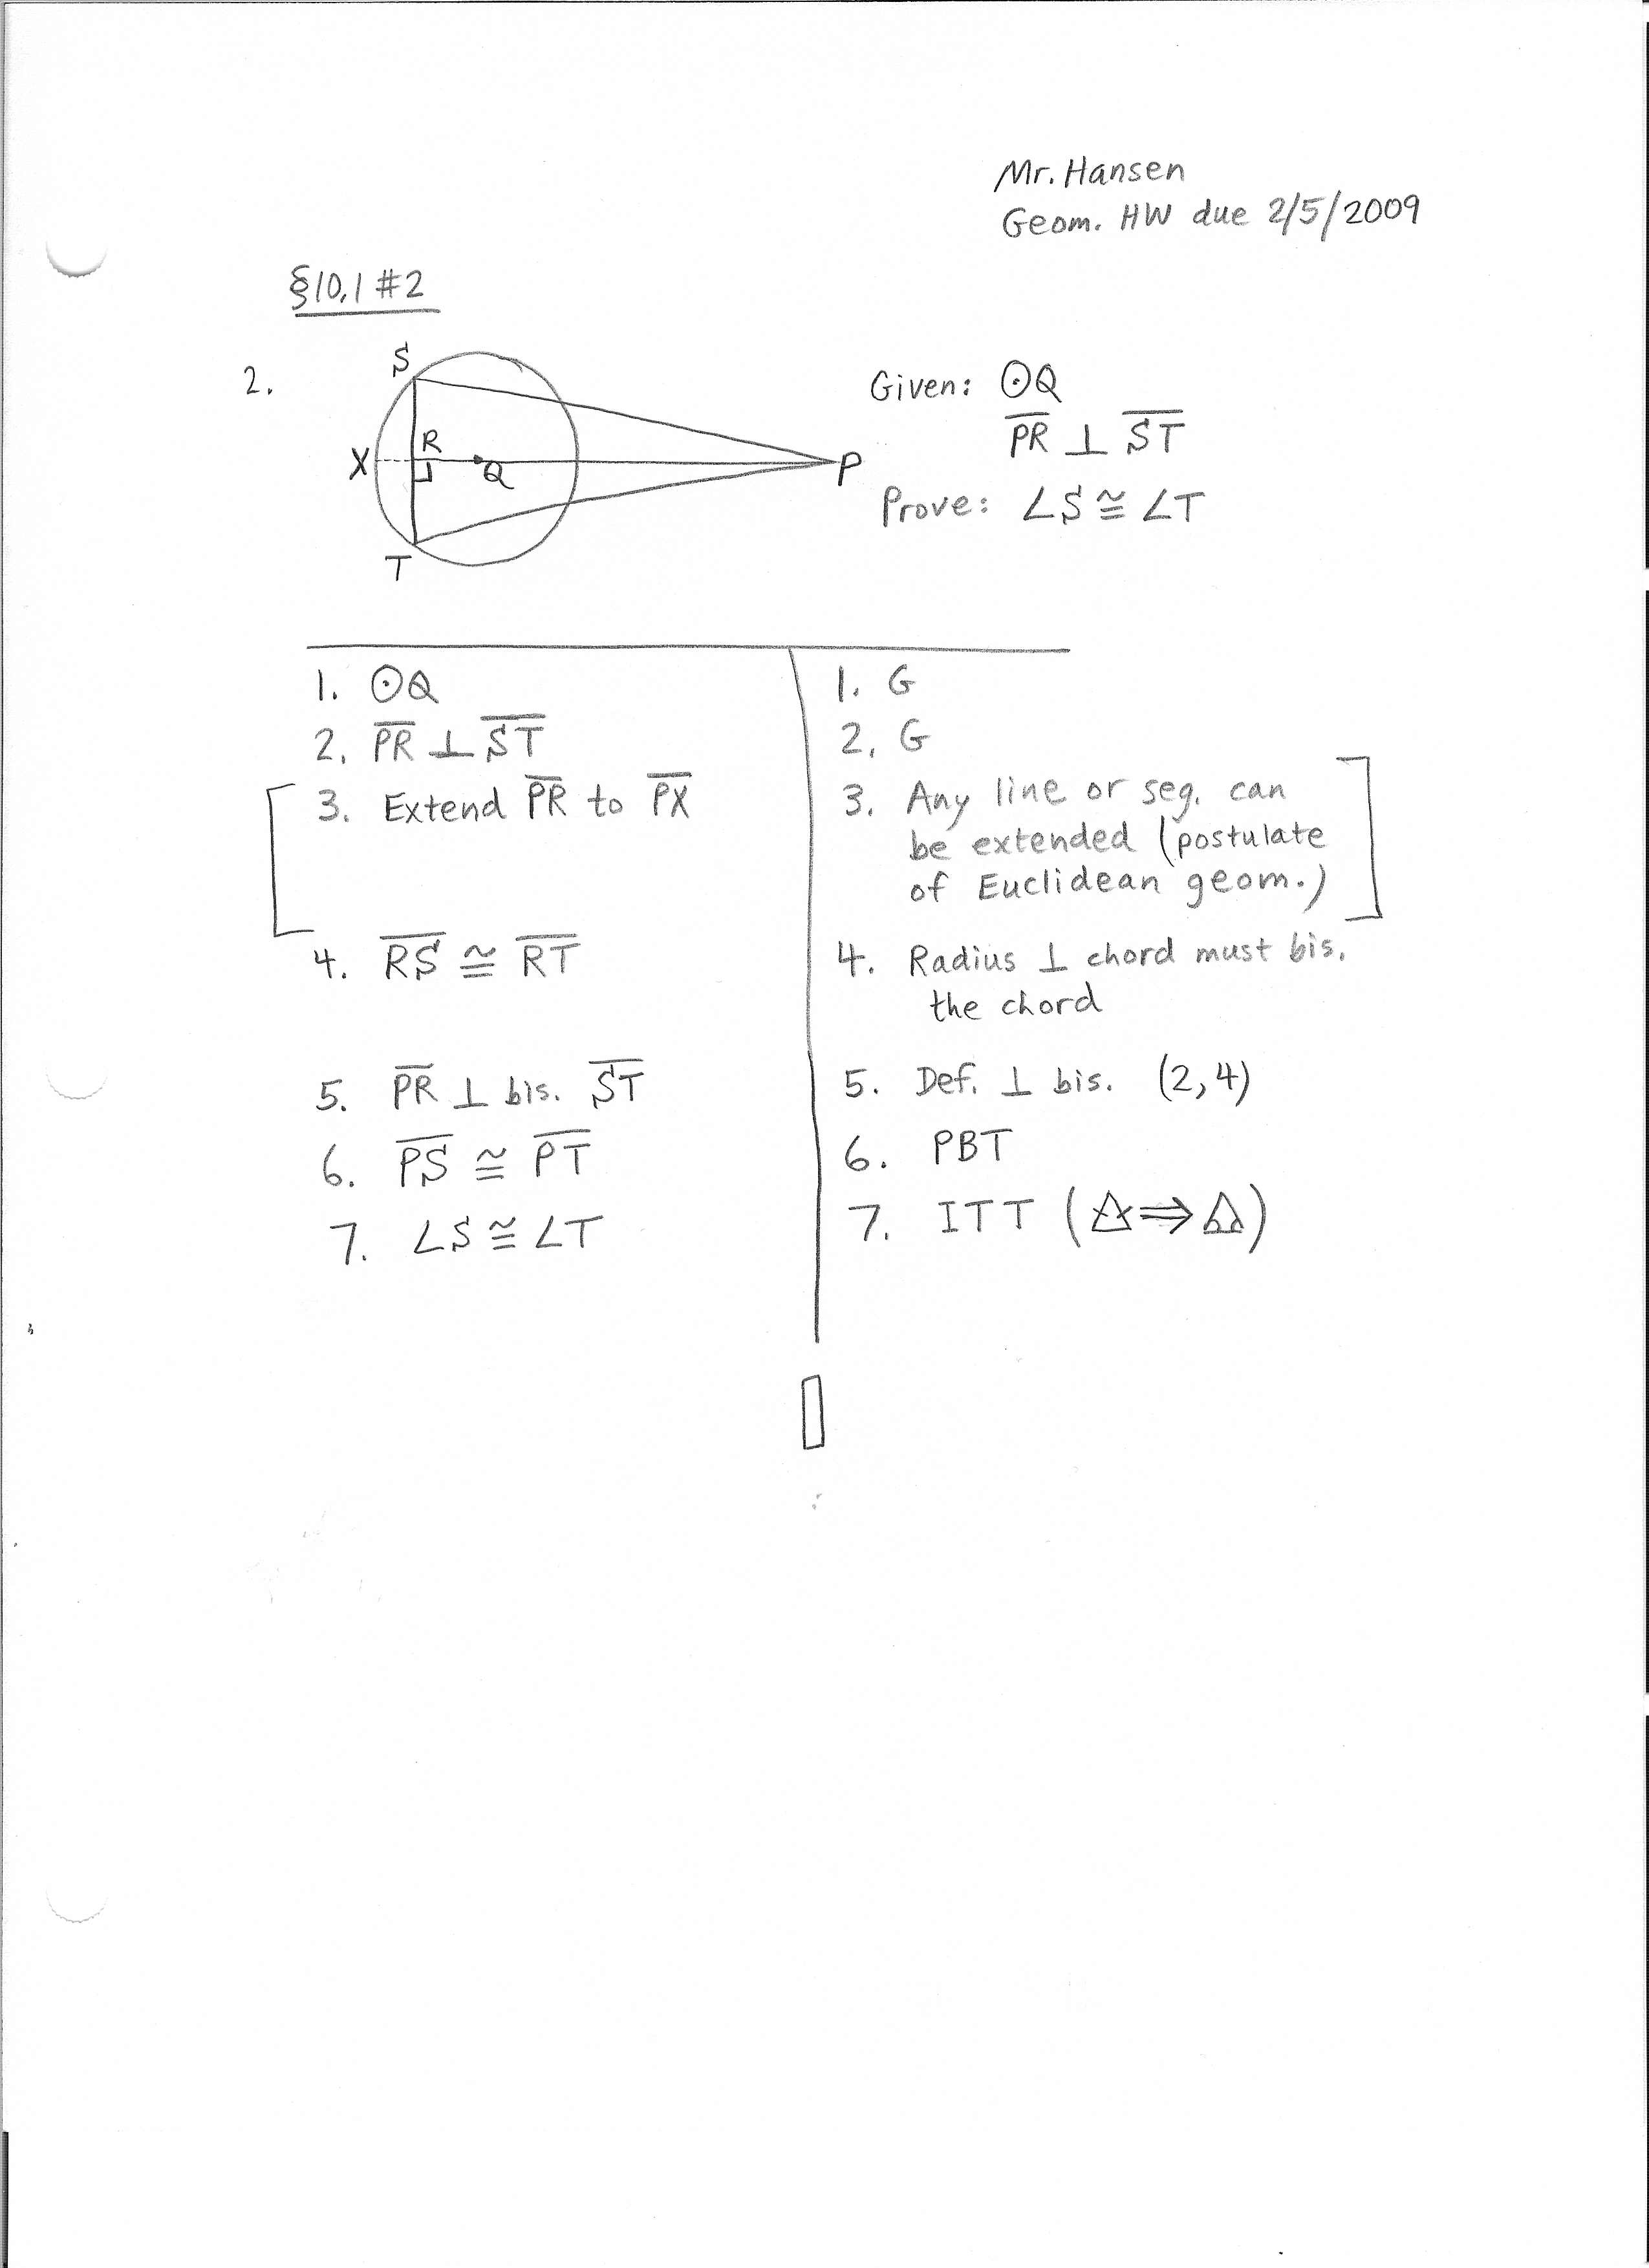 Mr. Hansen
Geom. HW due 2/5/2009
§10.1 #2
2.
S
X
R
Q
P
T
Given: ⊙Q
P̅R̅ ⊥ S̅T̅
Prove: ∠S ≅ ∠T
1. ⊙Q
1. G
2. P̅R̅ ⊥ S̅T̅
2. G
3. Extend P̅R̅ to P̅X̅
3. Any line or seg. can
be extended (postulate
of Euclidean geom.)
4. R̅S̅ ≅ R̅T̅
4. Radius ⊥ chord must bis.
the chord
5. P̅R̅ ⊥ bis. S̅T̅
5. Def. ⊥ bis. (2,4)
6. P̅S̅ ≅ P̅T̅
6. PBT
7. ∠S ≅ ∠T
7. ITT (△⇒△)